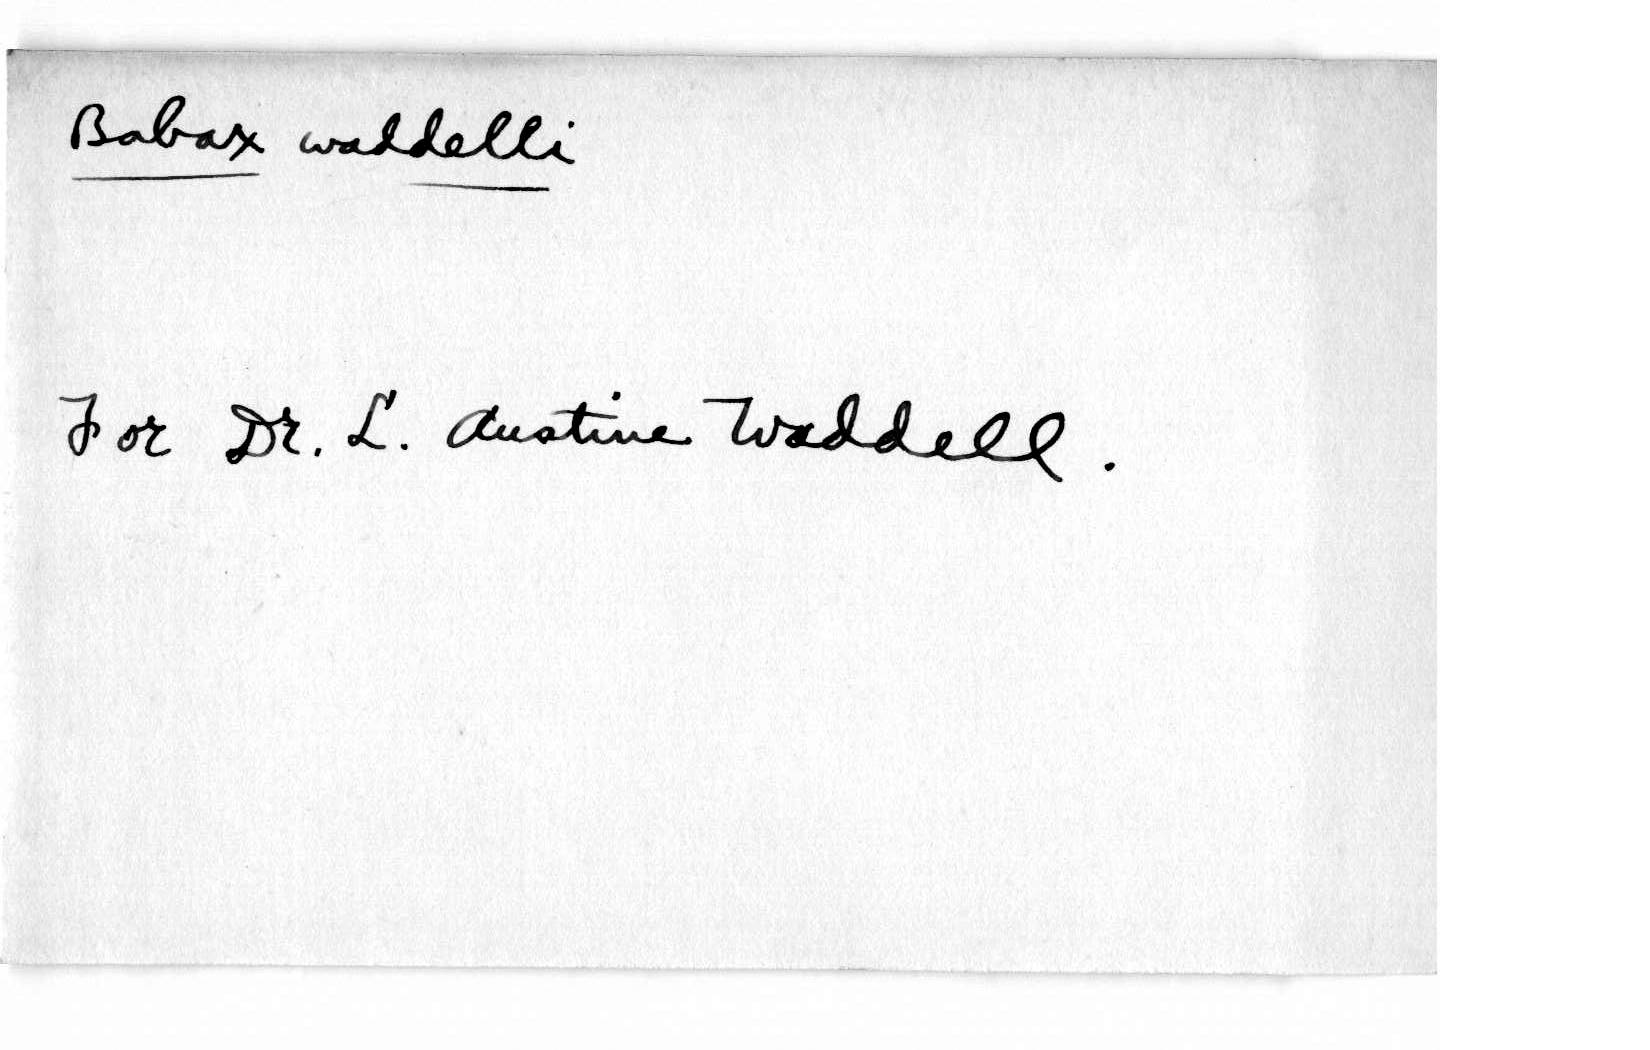 Babax waddelli
For Dr. L. Austine Waddell.